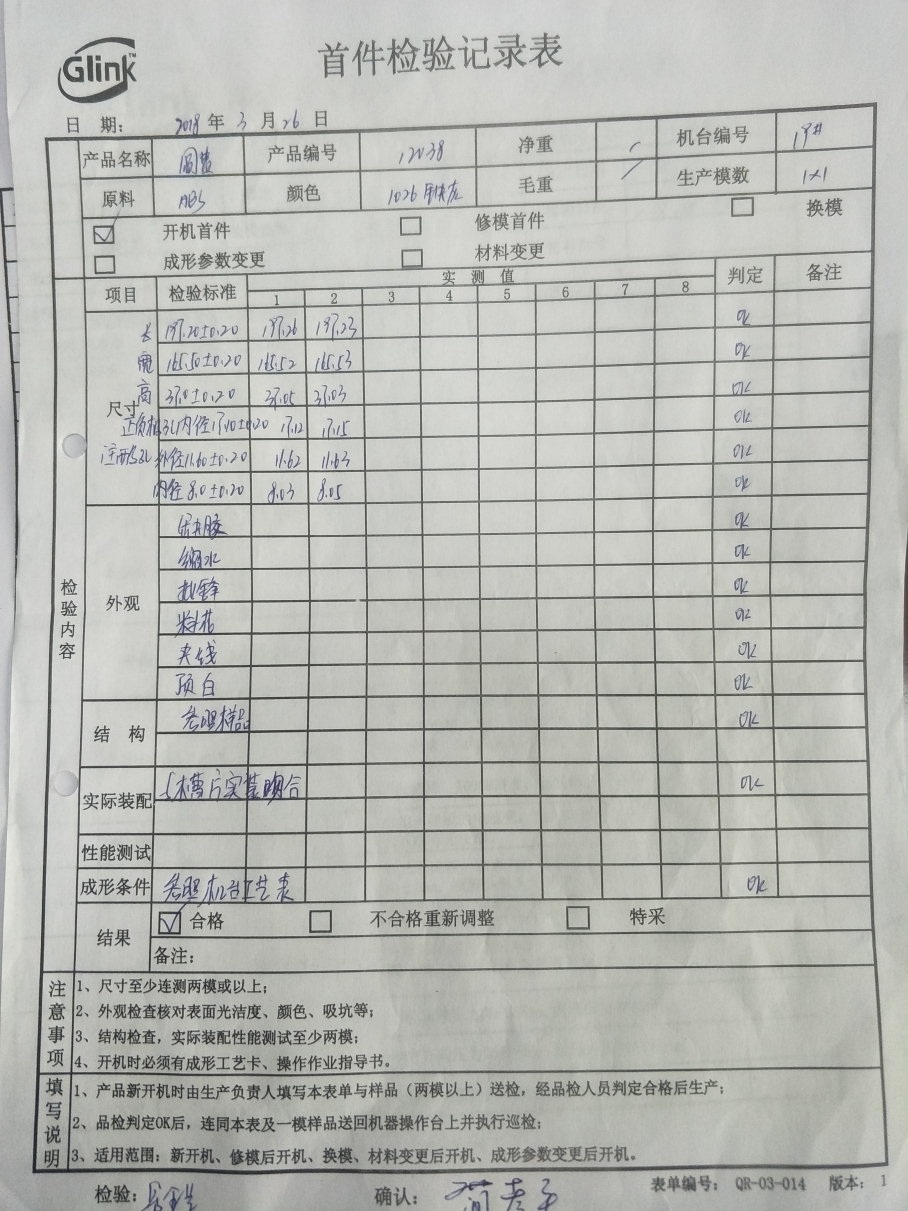 Glink™
首件检验记录表
日 期： 2018 年 3 月 26 日
产品名称 圆盐 产品编号 12038 净重 / 机台编号 19#
原料 ABS 颜色 1026 毛重 / 生产模数 1×1
☑ 开机首件 □ 修模首件 □ 换模
□ 成形参数变更 □ 材料变更
项目 检验标准 实测值 判定 备注
1 2 3 4 5 6 7 8
尺寸
长 197.20±0.20 197.26 197.23 OK
宽 165.50±0.20 165.52 165.53 OK
高 37.0±0.20 37.05 37.03 OK
正负极孔内径17.10±0.20 17.12 17.15 OK
注酸孔 外径11.60±0.20 11.62 11.63 OK
内径 8.0±0.20 8.03 8.05 OK
检验内容
外观
缺胶 OK
缩水 OK
批锋 OK
料花 OK
夹线 OK
顶白 OK
结 构 参照样品 OK
实际装配 OK
性能测试
成形条件 参照机台工艺表 OK
结果 ☑ 合格 □ 不合格重新调整 □ 特采
备注：
注意事项
1、尺寸至少连测两模或以上；
2、外观检查核对表面光洁度、颜色、吸坑等；
3、结构检查，实际装配性能测试至少两模；
4、开机时必须有成形工艺卡、操作作业指导书。
填写说明
1、产品新开机时由生产负责人填写本表单与样品（两模以上）送检，经品检人员判定合格后生产；
2、品检判定OK后，连同本表及一模样品送回机器操作台上并执行巡检；
3、适用范围：新开机、修模后开机、换模、材料变更后开机、成形参数变更后开机。
检验： 确认： 表单编号： QR-03-014 版本： 1